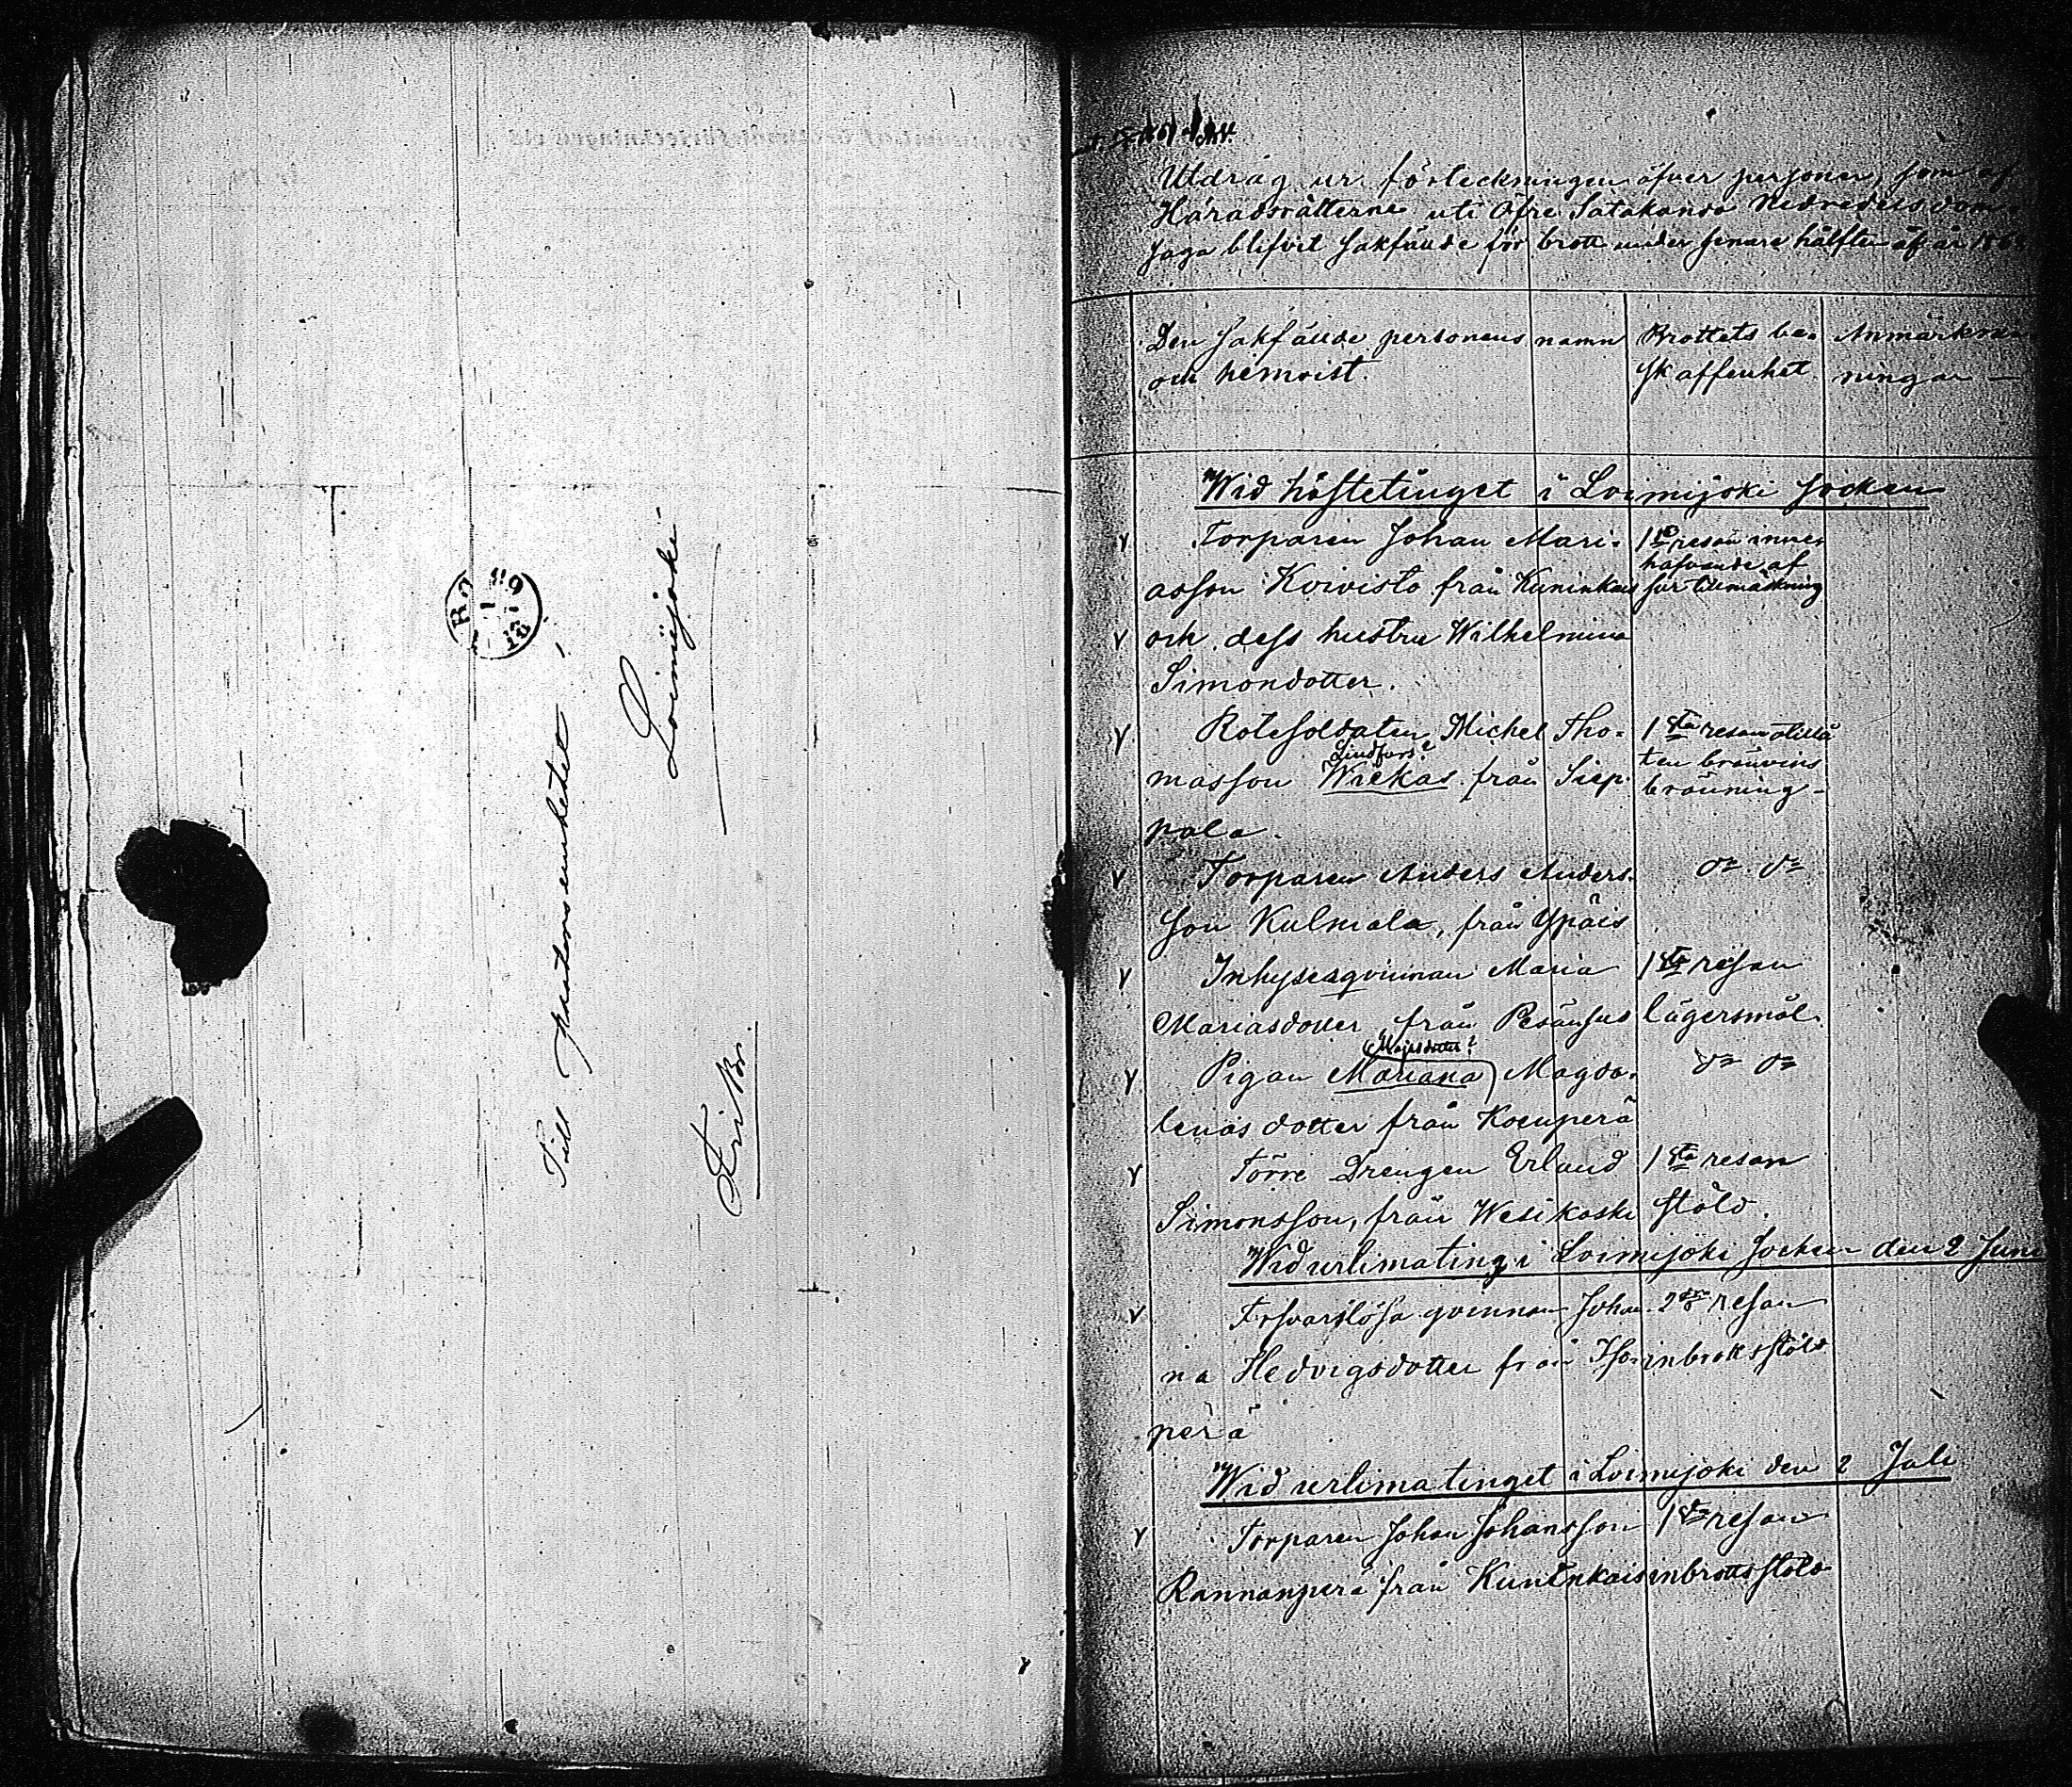 Till Pastorsembetet
Loimijoki
Fri Br.
Utdrag ur förteckningen öfver personer, som af
Häradsrätterne uti Öfre Satakunda Nedredels dom-
saga blifvit sakfälde för brott under senare hälften af år 186
Den sakfälde personens namn
och hemvist.
Brottets be-
skaffenhet
Anmärk
ningar
Wid hösttinget i Loimijoki socken
Torparen Johan Mari-
asson Koivisto från Kuninkais
och dess hustru Wilhelmina
Simondotter.
1sta resan inne-
hafvande af
för tillverkning
Rotesoldaten Michel Tho-
Lindfors?
masson Wiekas från Siep-
pala.
1sta resan otillå
ten bränvins
bränning
Torparen Anders Anders-
son Kulmala, från Ypäis
do do
Inhysesqvinnan Maria
Mariasdotter från Pesänsuo
1sta resan
lägersmål
Majasdotter?
Pigan Mariana Magda-
lenas dotter från Koenperä
do do
Förre Drengen Erland
Simonsson, från Wesikoski
1sta resan
stöld.
Wid urtimating i Loimijoki Socken den 2 Juni
Försvarslösa qvinnan Johan-
na Hedvigsdotter från Iso-
perä
2dra resan
inbrottsstöld
Wid urtima tinget i Loimijoki den 2 Juli
Torparen Johan Johansson
Rannanperä från Kuninkais
1sta resan
inbrottsstöld